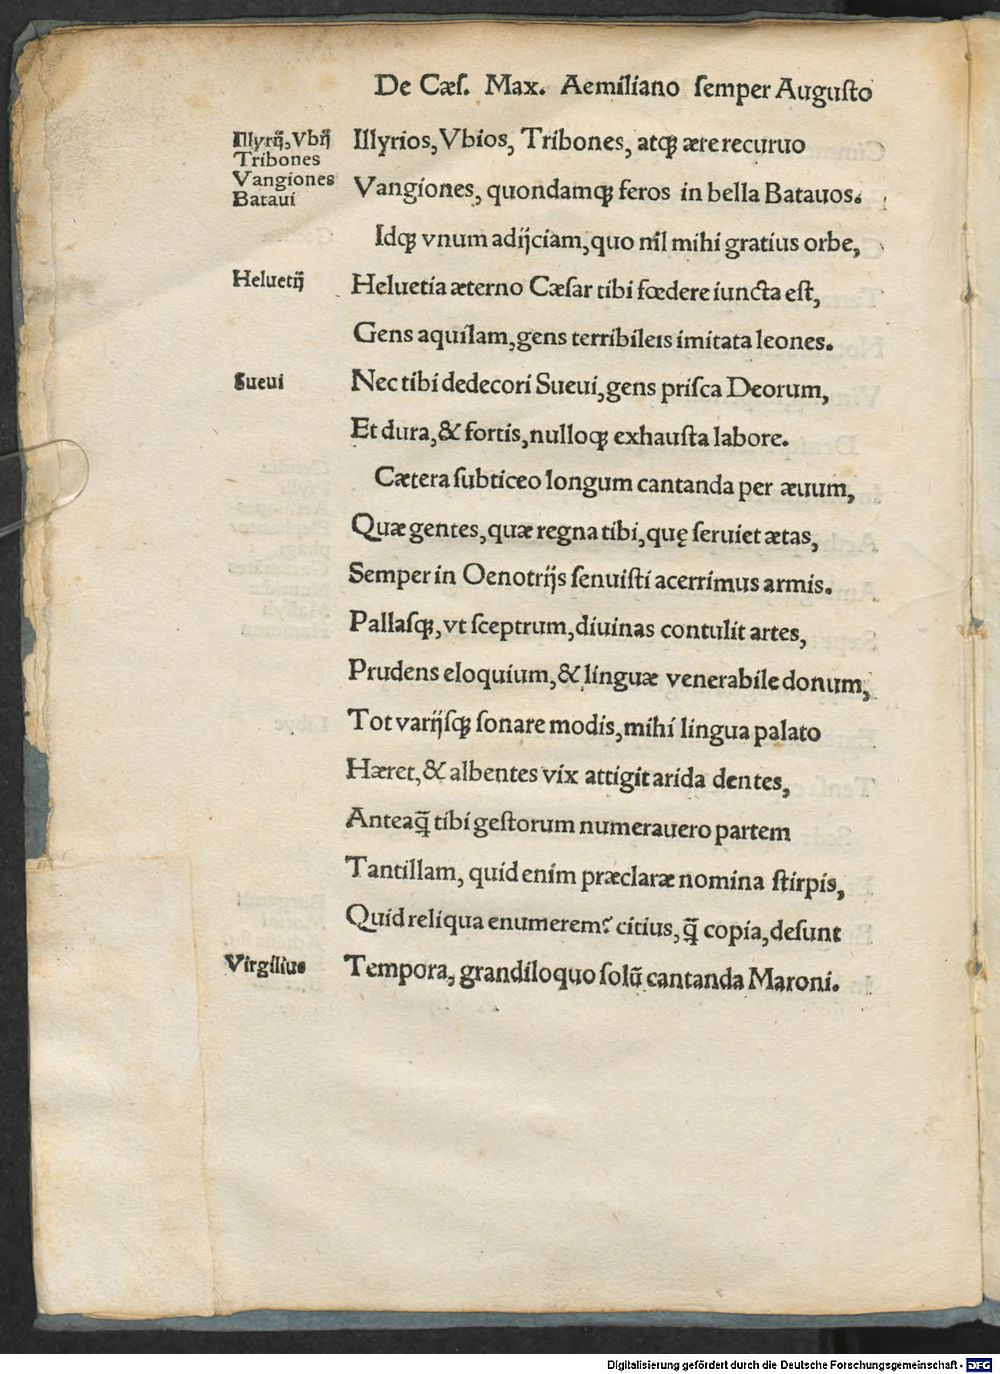 De Cæſ. Max. Aemiliano ſemper Auguſto
Illyrij̄, Vbij̄
Tribones
Vangiones
Bataui
Illyrios, Vbios, Tribones, atq; ære recuruo
Vangiones, quondamq; feros in bella Batauos.
Idq; vnum adijciam, quo nil mihi gratius orbe,
Heluetij
Heluetia æterno Cæſar tibi fœdere iuncta eſt,
Gens aquilam, gens terribileis imitata leones.
Sueui
Nec tibi dedecori Sueui, gens priſca Deorum,
Et dura, & fortis, nulloq; exhauſta labore.
Cætera ſubticeo longum cantanda per æuum,
Quæ gentes, quæ regna tibi, quę ſeruiet ætas,
Semper in Oenotrijs ſenuiſti acerrimus armis.
Pallaſq;, vt ſceptrum, diuinas contulit artes,
Prudens eloquium, & linguæ venerabile donum,
Tot varijſq; ſonare modis, mihi lingua palato
Hæret, & albentes vix attigit arida dentes,
Anteaq̄ tibi geſtorum numerauero partem
Tantillam, quid enim præclaræ nomina ſtirpis,
Quid reliqua enumerem? citius, q̄ copia, deſunt
Virgilius
Tempora, grandiloquo ſolū cantanda Maroni.
Digitalisierung gefördert durch die Deutsche Forschungsgemeinschaft - DFG